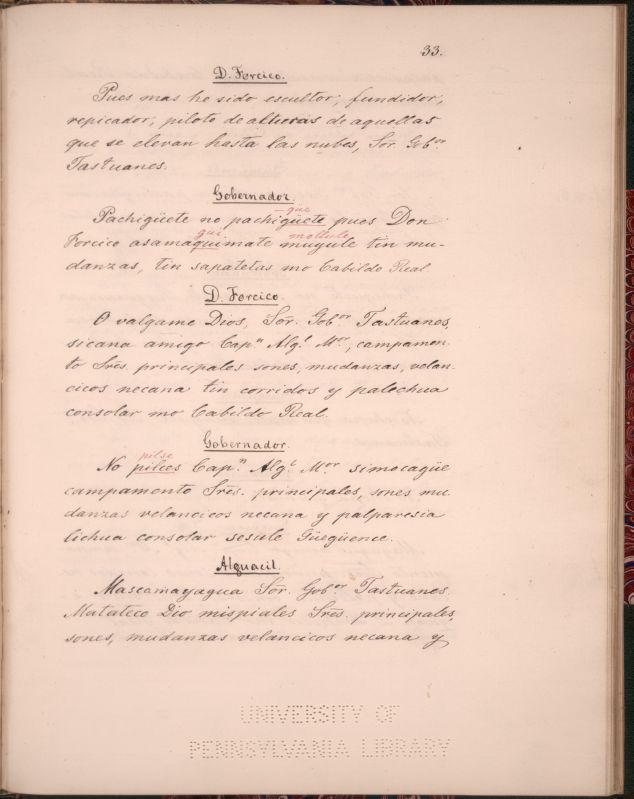 33.
D. Forcico.
Pues mas he sido escultor, fundidor,
repicador, piloto de alturas de aquellas
que se elevan hasta las nubes, Sor. Gobor
Tastuanes.
Gobernador.
que
Pachigüete no pachigüete pues Don
qui motlule
Forcico asamaquimate muyule tin mu-
danzas, tin sapatetas mo Cabildo Real.
D. Forcico.
O valgame Dios, Sor. Gobor Tastuanes,
sicana amigo Capn Algl Mor, campamen-
to Sres. principales sones, mudanzas, velan-
cicos necana tin corridos y palechua
consolar mo Cabildo Real.
Gobernador.
pilse
No pilces Capn Algl Mor simocagüe
campamento Sres. principales, sones mu-
danzas velancicos necana y palparesia
lichua consolar sesule Güegüence.
Alguacil.
Mascamayagua Sor. Gobor Tastuanes.
Matateco Dio mispiales Sres. principales,
sones, mudanzas velancicos necana y
UNIVERSITY OF
PENNSYLVANIA LIBRARY